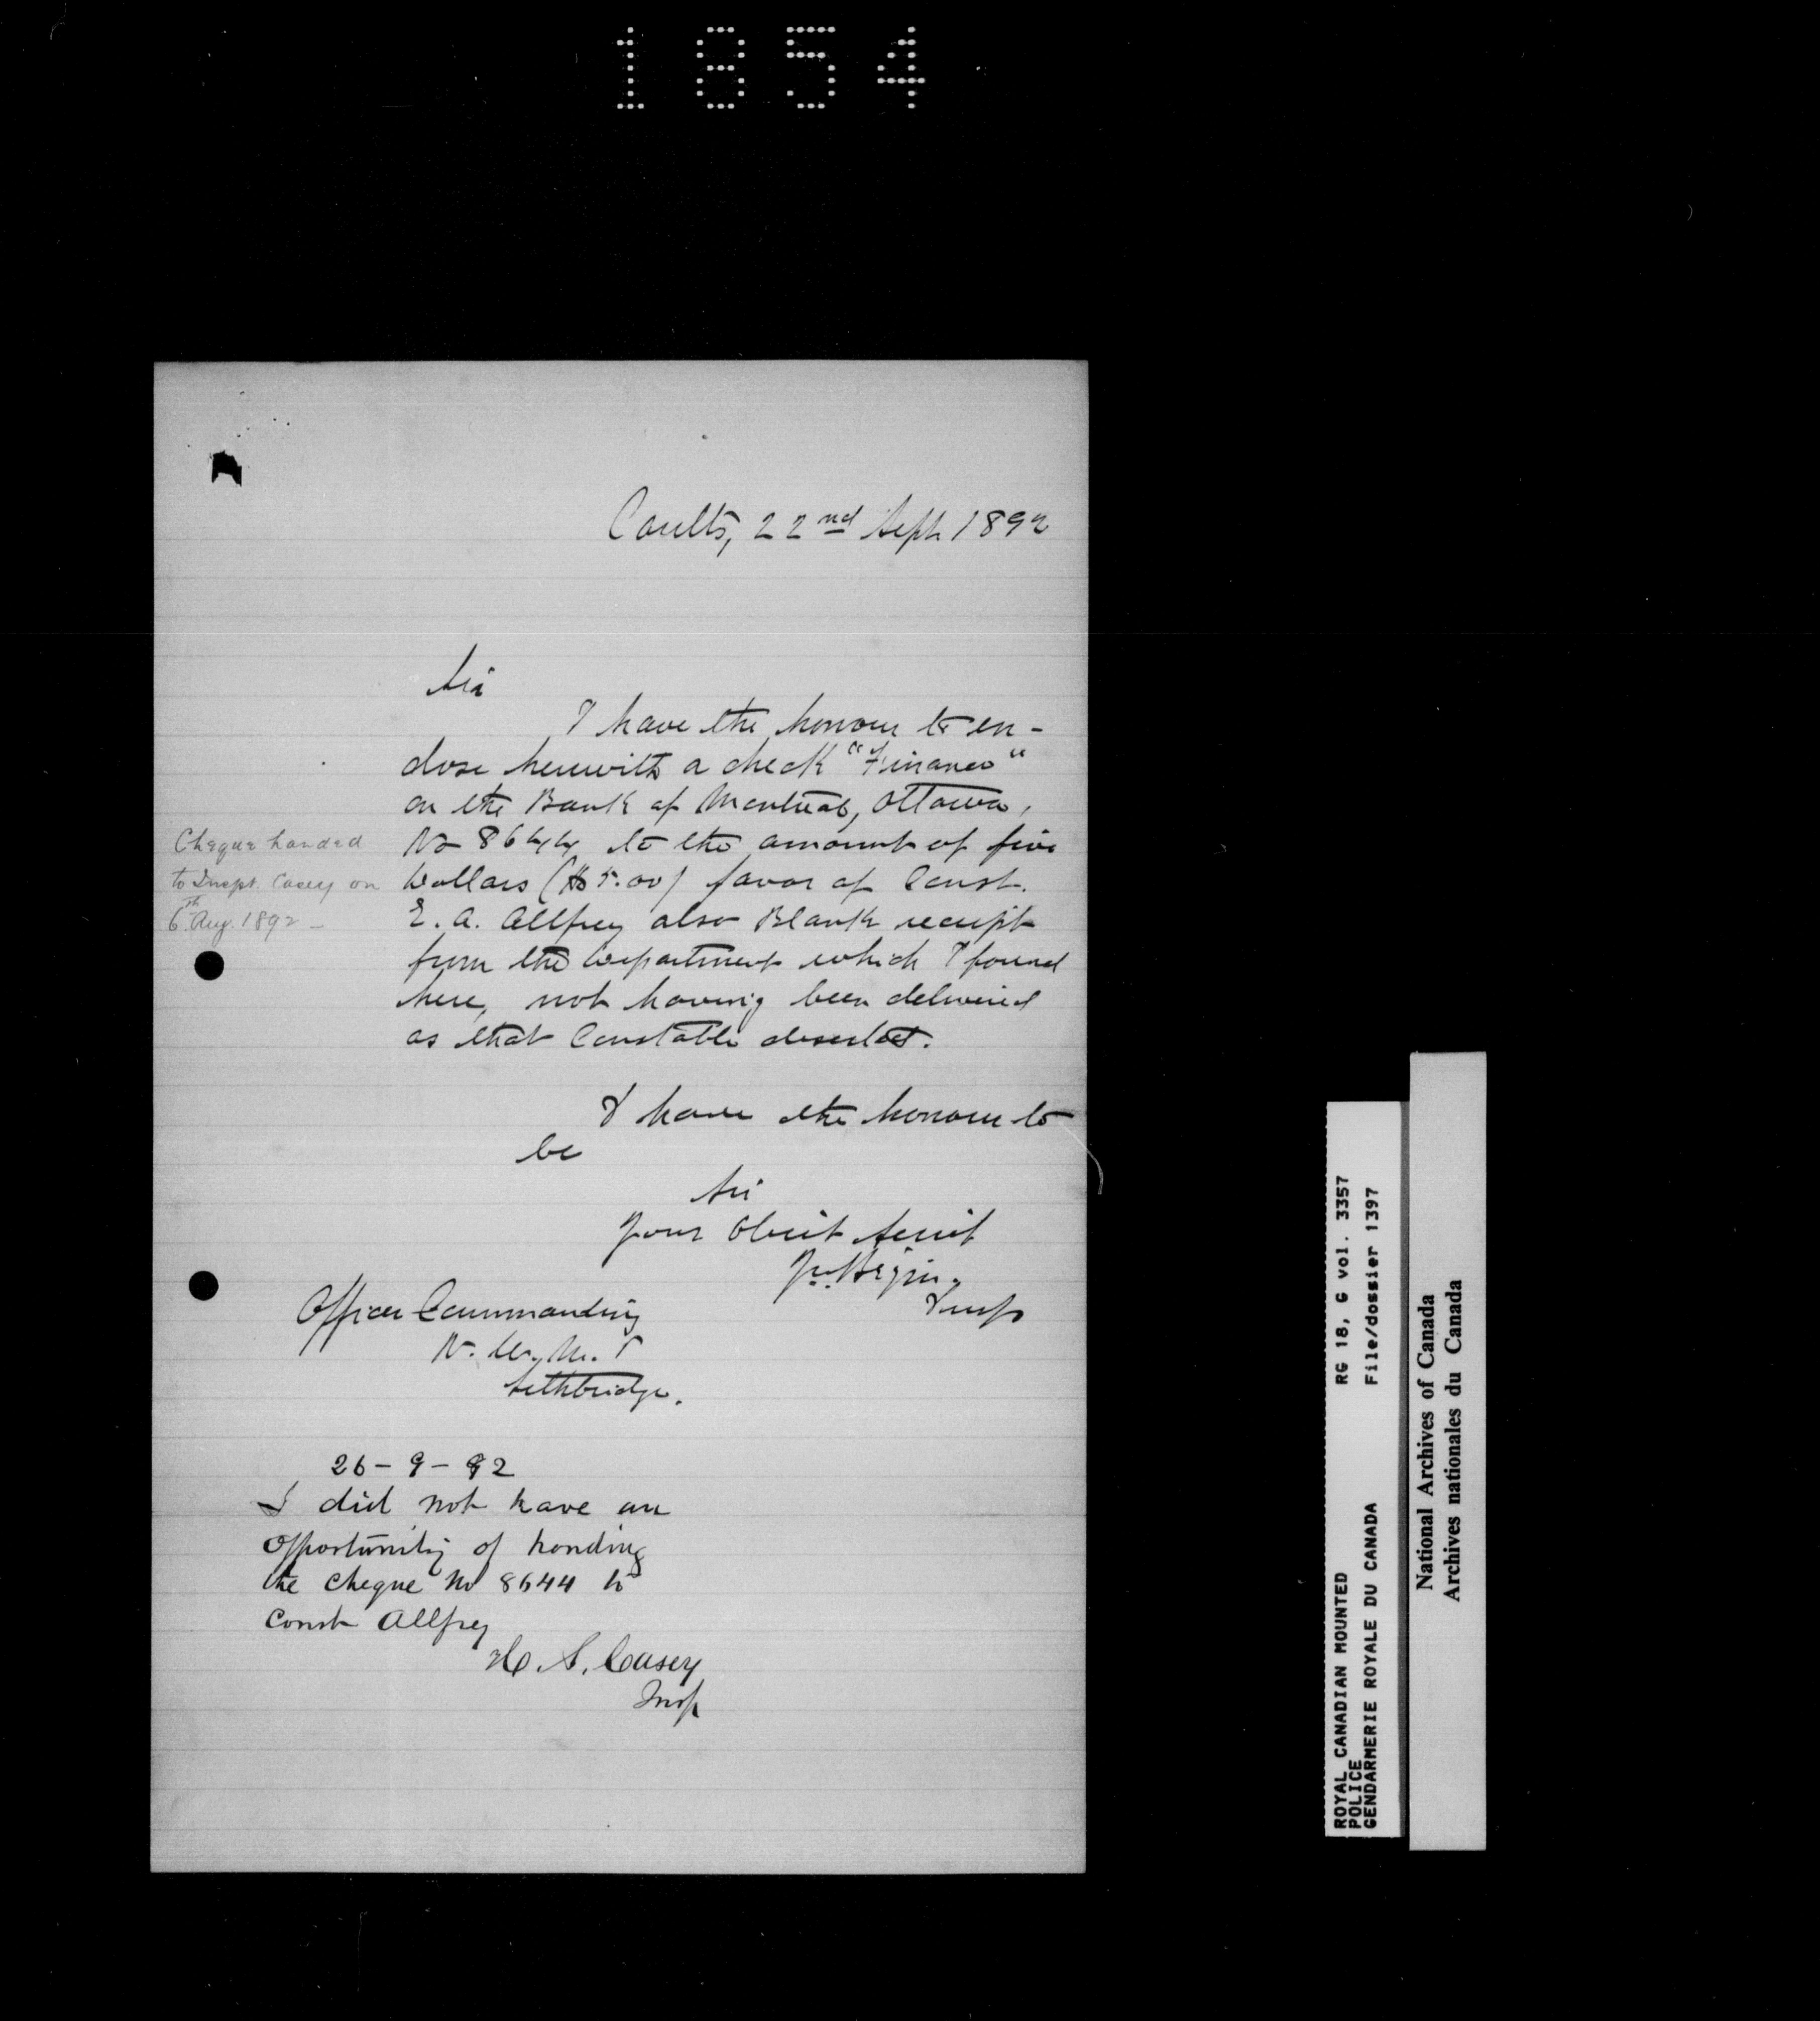 1854
Coutts, 22nd Sept 1892
Sir
I have the honour to en-
close herewith a check "Finance"
on the Bank of Montreal, Ottawa,
No 8644 to the amount of five
Dollars ($5.00) favor of Const.
E. A. Allfrey also Blank receipt
from the Department which I found
here, not having been delivered
as that Constable deserted.
Cheque handed
to Inspt. Casey on
6th Aug. 1892 -
I have the honour to
be
Sir
Your Obeit Servt
J. V. Begin.
Insp
Officer Commanding
N. W. M. P
Lethbridge.
26-9-92
I did not have an
opportunity of handing
the cheque No 8644 to
Const Allfrey
H. S. Casey
Insp
ROYAL CANADIAN MOUNTED RG 18, G vol. 3357
POLICE File/dossier 1397
GENDARMERIE ROYALE DU CANADA
National Archives of Canada
Archives nationales du Canada